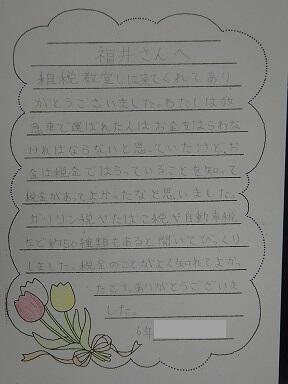 福井さんへ
租税教室しに来てくれてあり
がとうございました。わたしは救
急車で運ばれた人はお金をはらわな
ければならないと思っていたけど、お
金は税金ではらっていることを知って
税金があってよかったなと思いました。
ガソリン税やたばこ税や自動車税
など約50種類もあると聞いてびっくり
しました。税金のことがよく知れてよか
たです。ありがとうございま
した。
6年